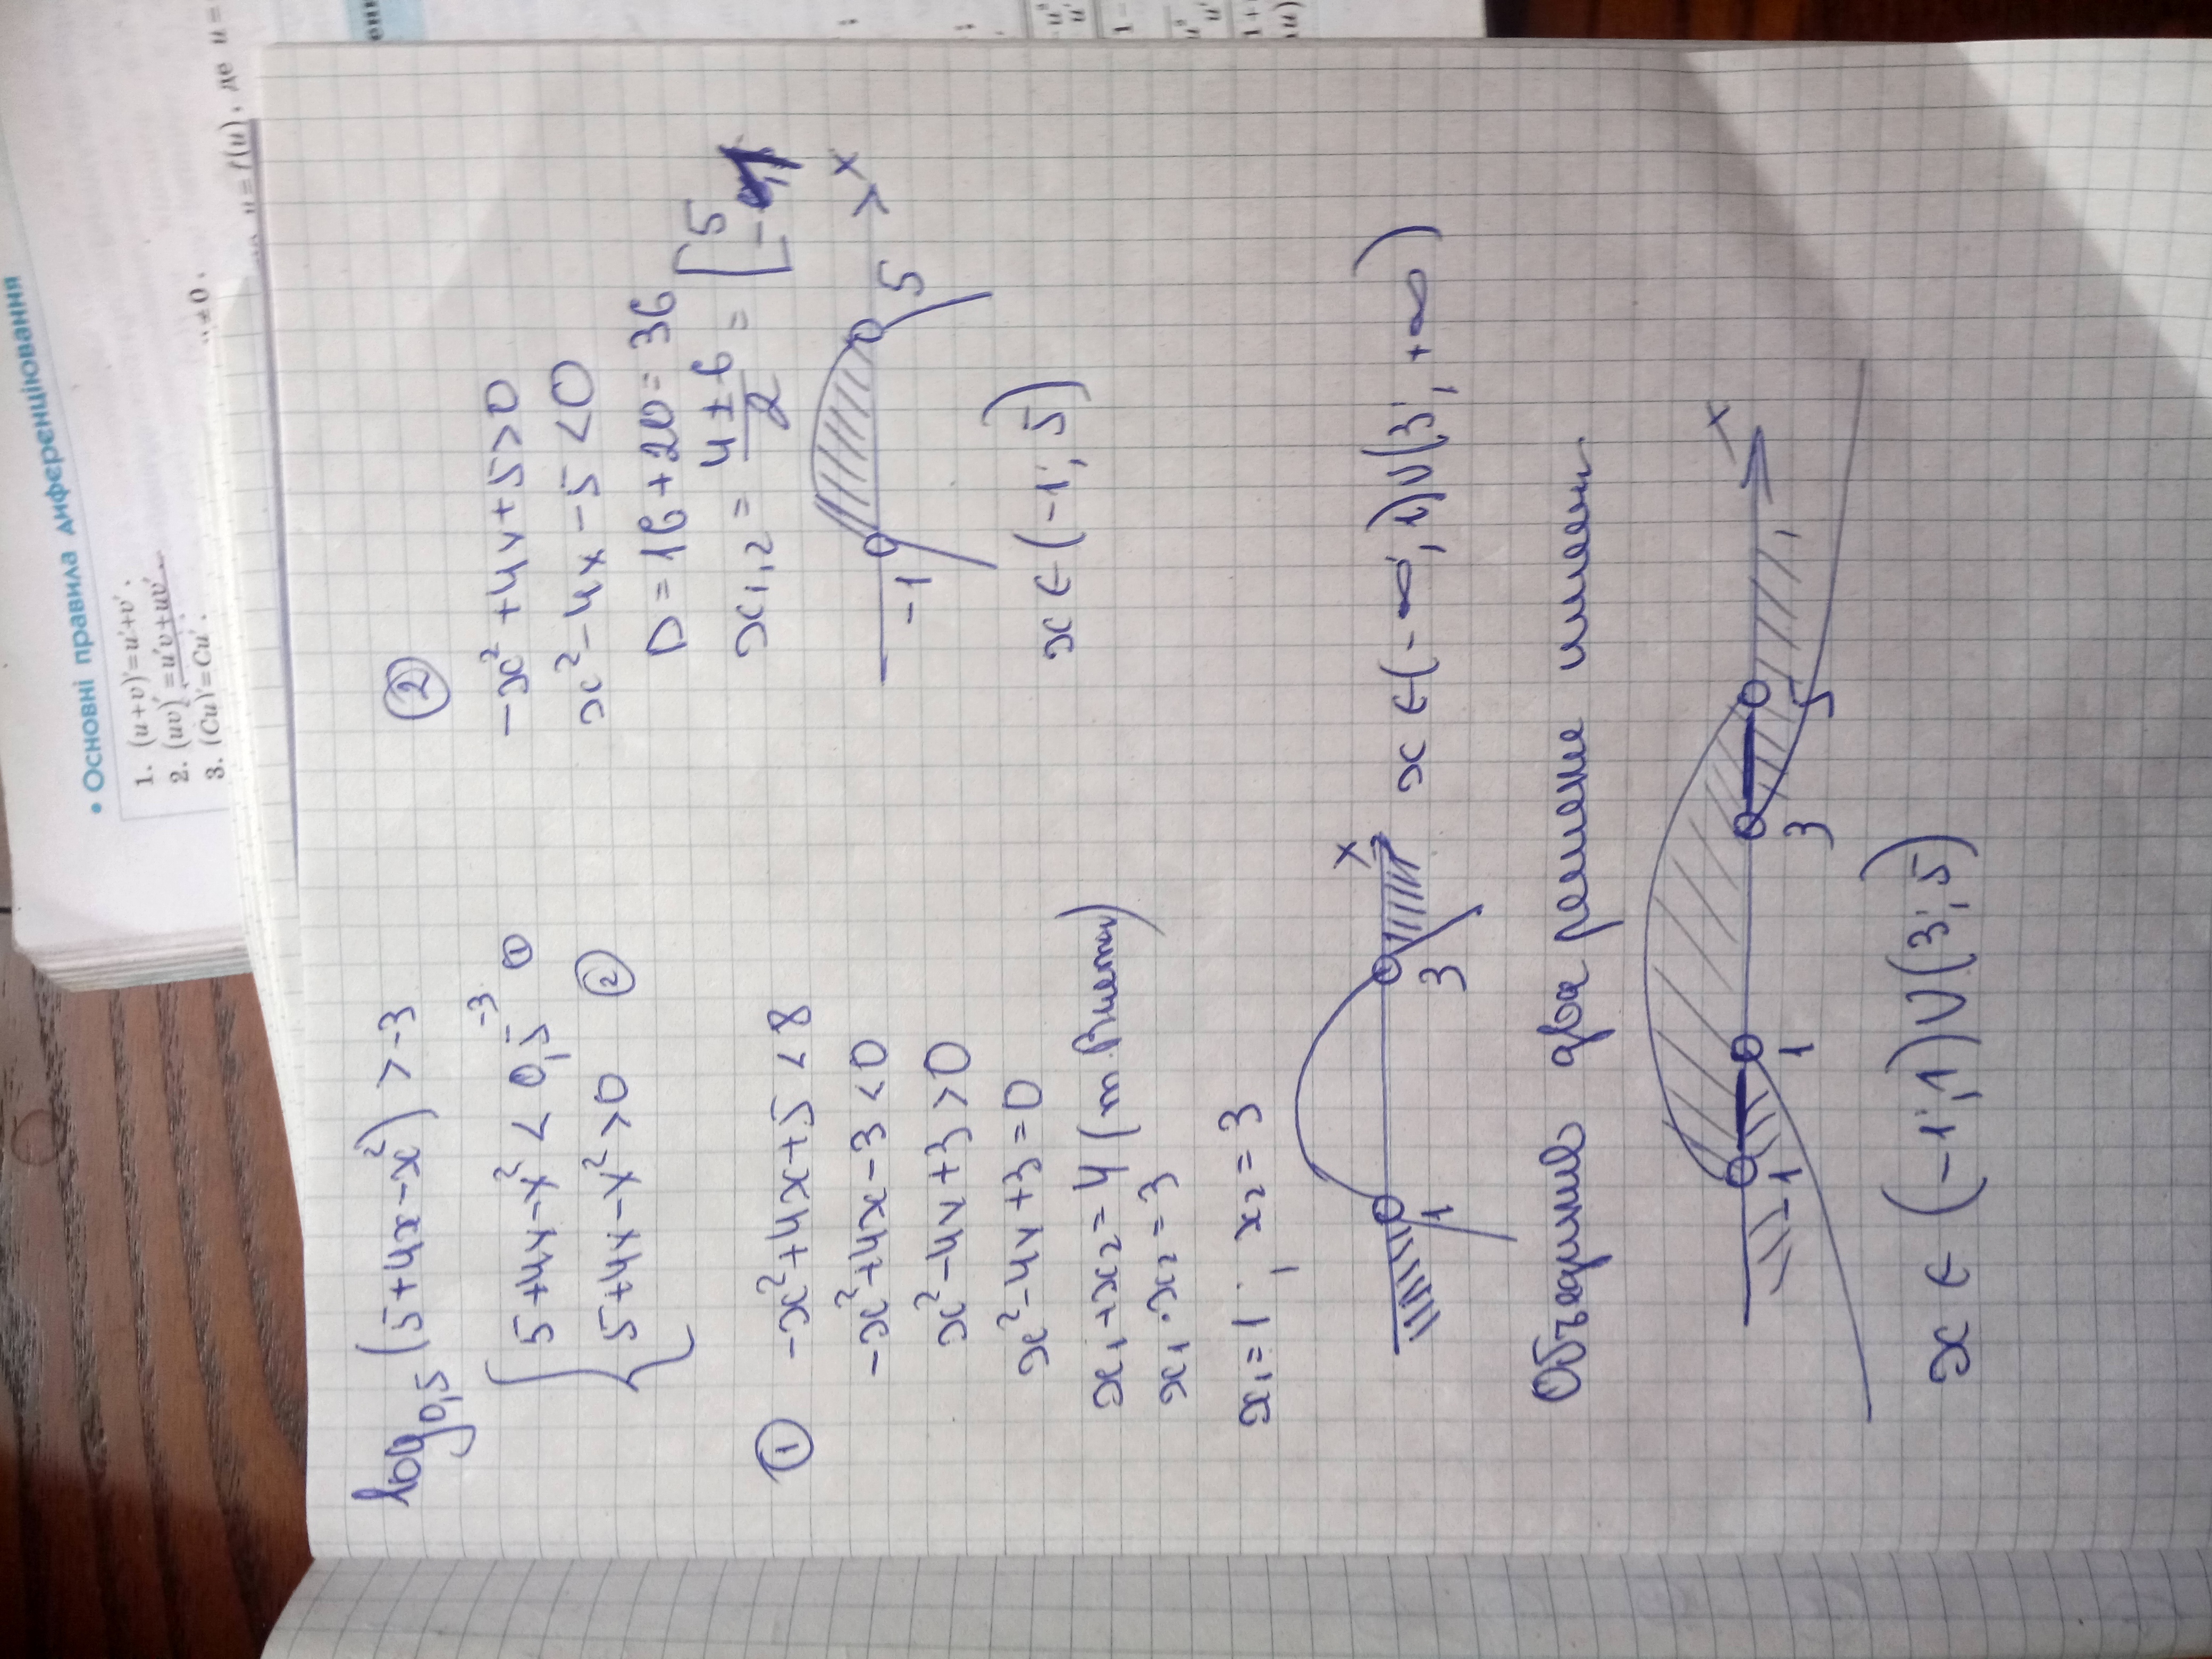 • Основні правила диференціювання
1. (u+v)'=u'+v'.
2. (uv)'=u'v+uv'.
3. (Cu)'=Cu'.
≠0.
u=f(u), де u=
log₀,₅(5+4x-x²)>-3
{5+4x-x²<0,5⁻³ ①
5+4x-x²>0 ②
① -x²+4x+5<8
-x²+4x-3<0
x²-4x+3>0
x²-4x+3=0
x₁+x₂=4 (т. Виета)
x₁·x₂=3
x₁=1; x₂=3
1 3 x
x∈(-∞;1)∪(3;+∞)
②
-x²+4x+5>0
x²-4x-5<0
D=16+20=36
x₁,₂=4±6/2=[5 -1
-1 5 x
x∈(-1;5)
Объединив два решение имеем
-1 1 3 5 x
x∈(-1;1)∪(3;5)